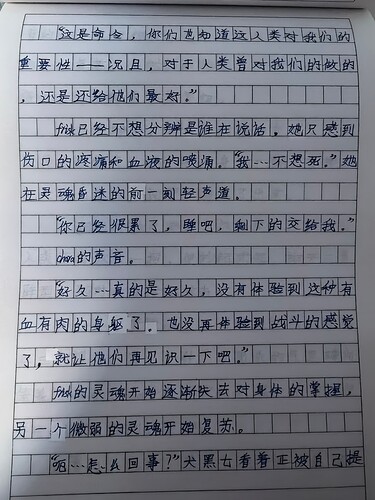 “这是命令，你们也知道这人类对我们的
重要性——况且，对于人类曾对我们的做的
，还是还给他们最好。”
frisk已经不想分辨是谁在说话。她只感到
伤口的疼痛和血液的喷涌。“我…不想死。”她
在灵魂昏迷的前一刻轻声道。
“你已经很累了，睡吧，剩下的交给我。”
chara的声音。
“好久…真的是好久，没有体验到这种有
血有肉的身躯了。也没再体验到战斗的感觉
了，就让他们再见识一下吧。”
frisk的灵魂开始逐渐失去对身体的掌握，
另一个微弱的灵魂开始复苏。
“呃…怎么回事？”犬黑七看着正被自己提